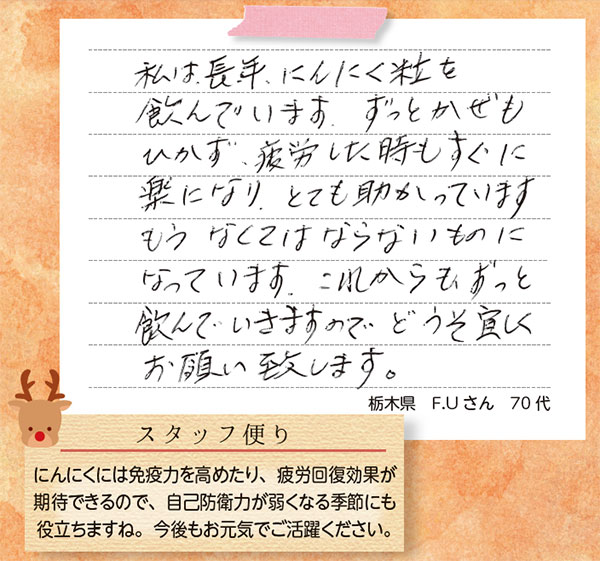 私は長年、にんにく粒を
飲んでいます。ずっとかぜも
ひかず、疲労した時もすぐに
楽になり、とても助かっています
もう なくてはならないものに
なっています。これからもずっと
飲んでいきますので どうぞ宜しく
お願い致します。
栃木県 F.Uさん 70代
スタッフ便り
にんにくには免疫力を高めたり、疲労回復効果が
期待できるので、自己防衛力が弱くなる季節にも
役立ちますね。今後もお元気でご活躍ください。